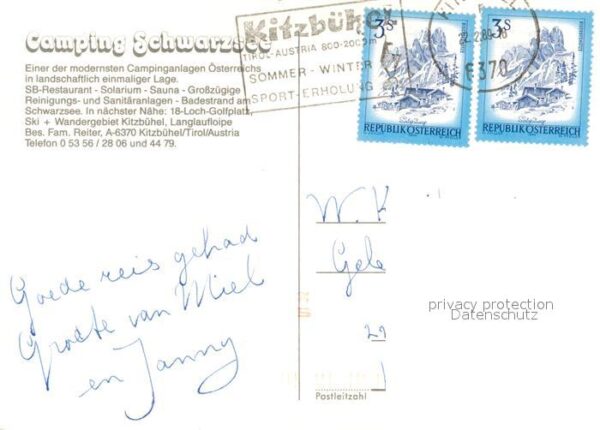 Camping Schwarzsee
Einer der modernsten Campinganlagen Österreichs
in landschaftlich einmaliger Lage.
SB-Restaurant - Solarium - Sauna - Großzügige
Reinigungs- und Sanitäranlagen - Badestrand am
Schwarzsee. In nächster Nähe: 18-Loch-Golfplatz,
Ski + Wandergebiet Kitzbühel, Langlaufloipe
Bes. Fam. Reiter, A-6370 Kitzbühel/Tirol/Austria
Telefon 0 53 56 / 28 06 und 44 79.
Kitzbühel
TIROL-AUSTRIA 800-2000m
SOMMER - WINTER
SPORT-ERHOLUNG
6370
3S
REPUBLIK ÖSTERREICH
3S
REPUBLIK ÖSTERREICH
Goede reis gehad
Groete van Miel
en Janny
W. K
Gele
29
privacy protection
Datenschutz
Postleitzahl